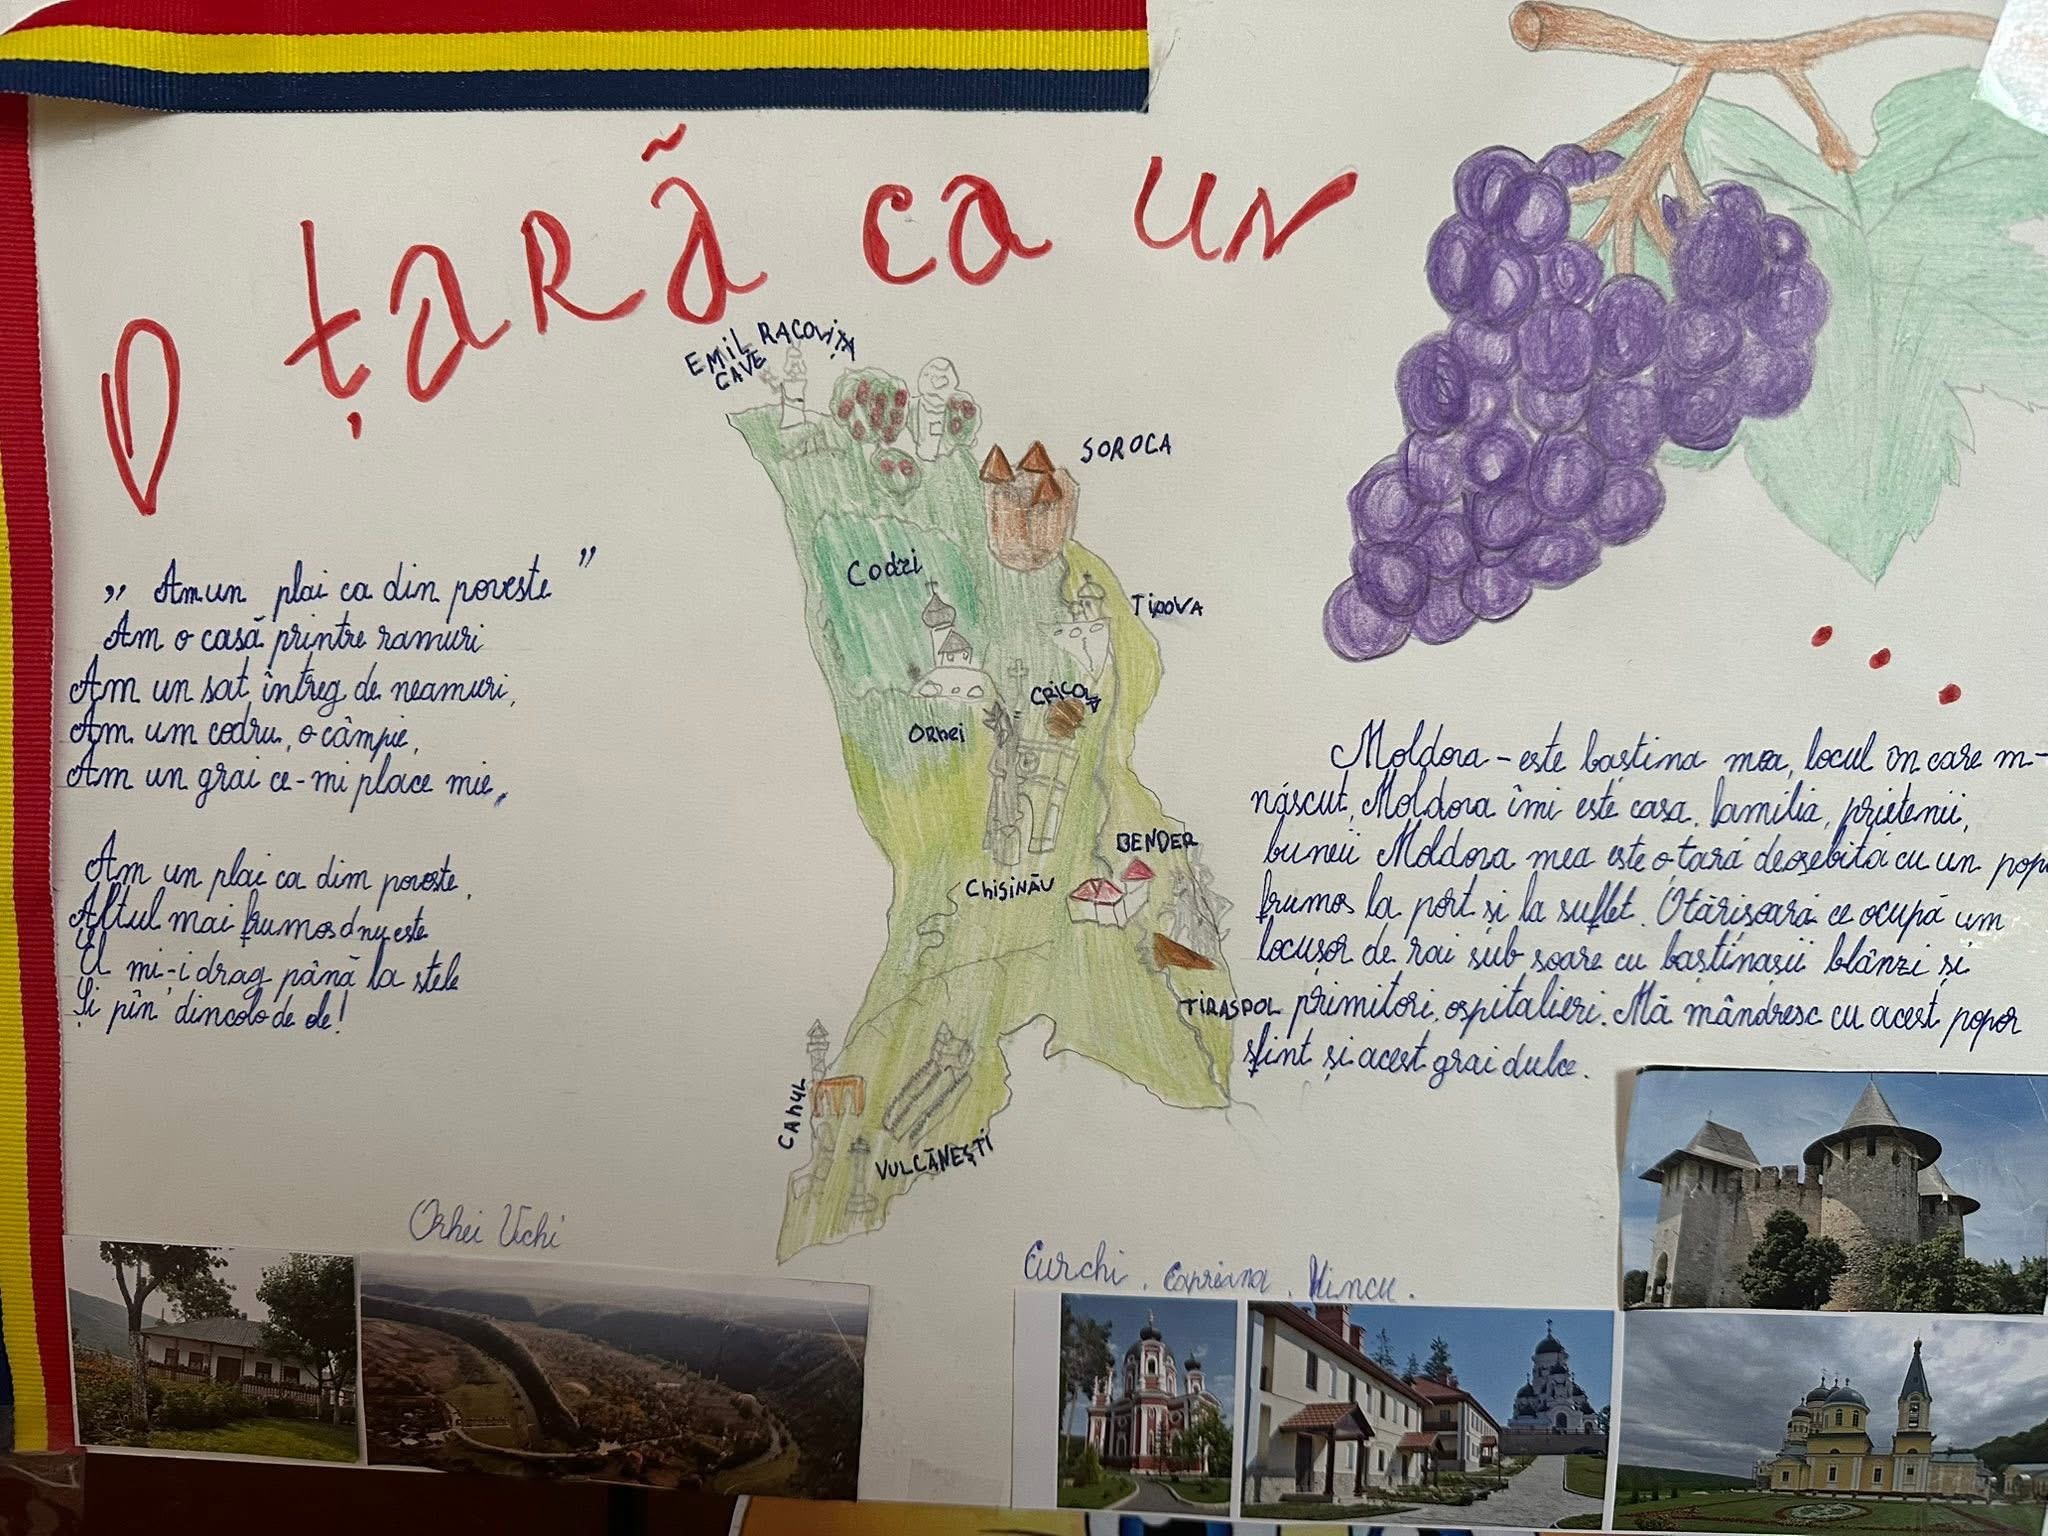 O țară ca un
...
EMIL RACOVIȚĂ
CAVE
SOROCA
Codri
ȚIPOVA
CRICOVA
Orhei
BENDER
Chișinău
TIRASPOL
CAHUL
VULCĂNEȘTI
„ Am un plai ca din poveste ”
Am o casă printre ramuri
Am un sat întreg de neamuri,
Am un codru, o câmpie,
Am un grai ce-mi place mie,
Am un plai ca din poveste,
Altul mai frumos nu este
El mi-i drag până la stele
Și pîn' dincolo de ele!
Moldova - este baștina mea, locul în care m-
născut, Moldova îmi este casa, familia, prietenii,
buneii Moldova mea este o țară deosebită cu un
frumos la port și la suflet. O țărișoară ce ocupă un
locușor de rai sub soare cu baștinașii blânzi și
primitori, ospitalieri. Mă mândresc cu acest popor
sfînt și acest grai dulce.
Orhei Vechi
Curchi, Căpriana, Hîncu.